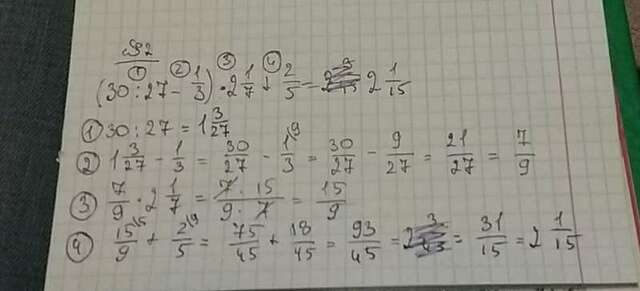 №2
(30:27 - 1/3) · 2 1/7 + 2/5 = 2 1/15
① 30:27 = 1 3/27
② 1 3/27 - 1/3 = 30/27 - 1/3 = 30/27 - 9/27 = 21/27 = 7/9
③ 7/9 · 2 1/7 = 7·15/9·7 = 15/9
④ 15/9 + 2/5 = 75/45 + 18/45 = 93/45 = 31/15 = 2 1/15